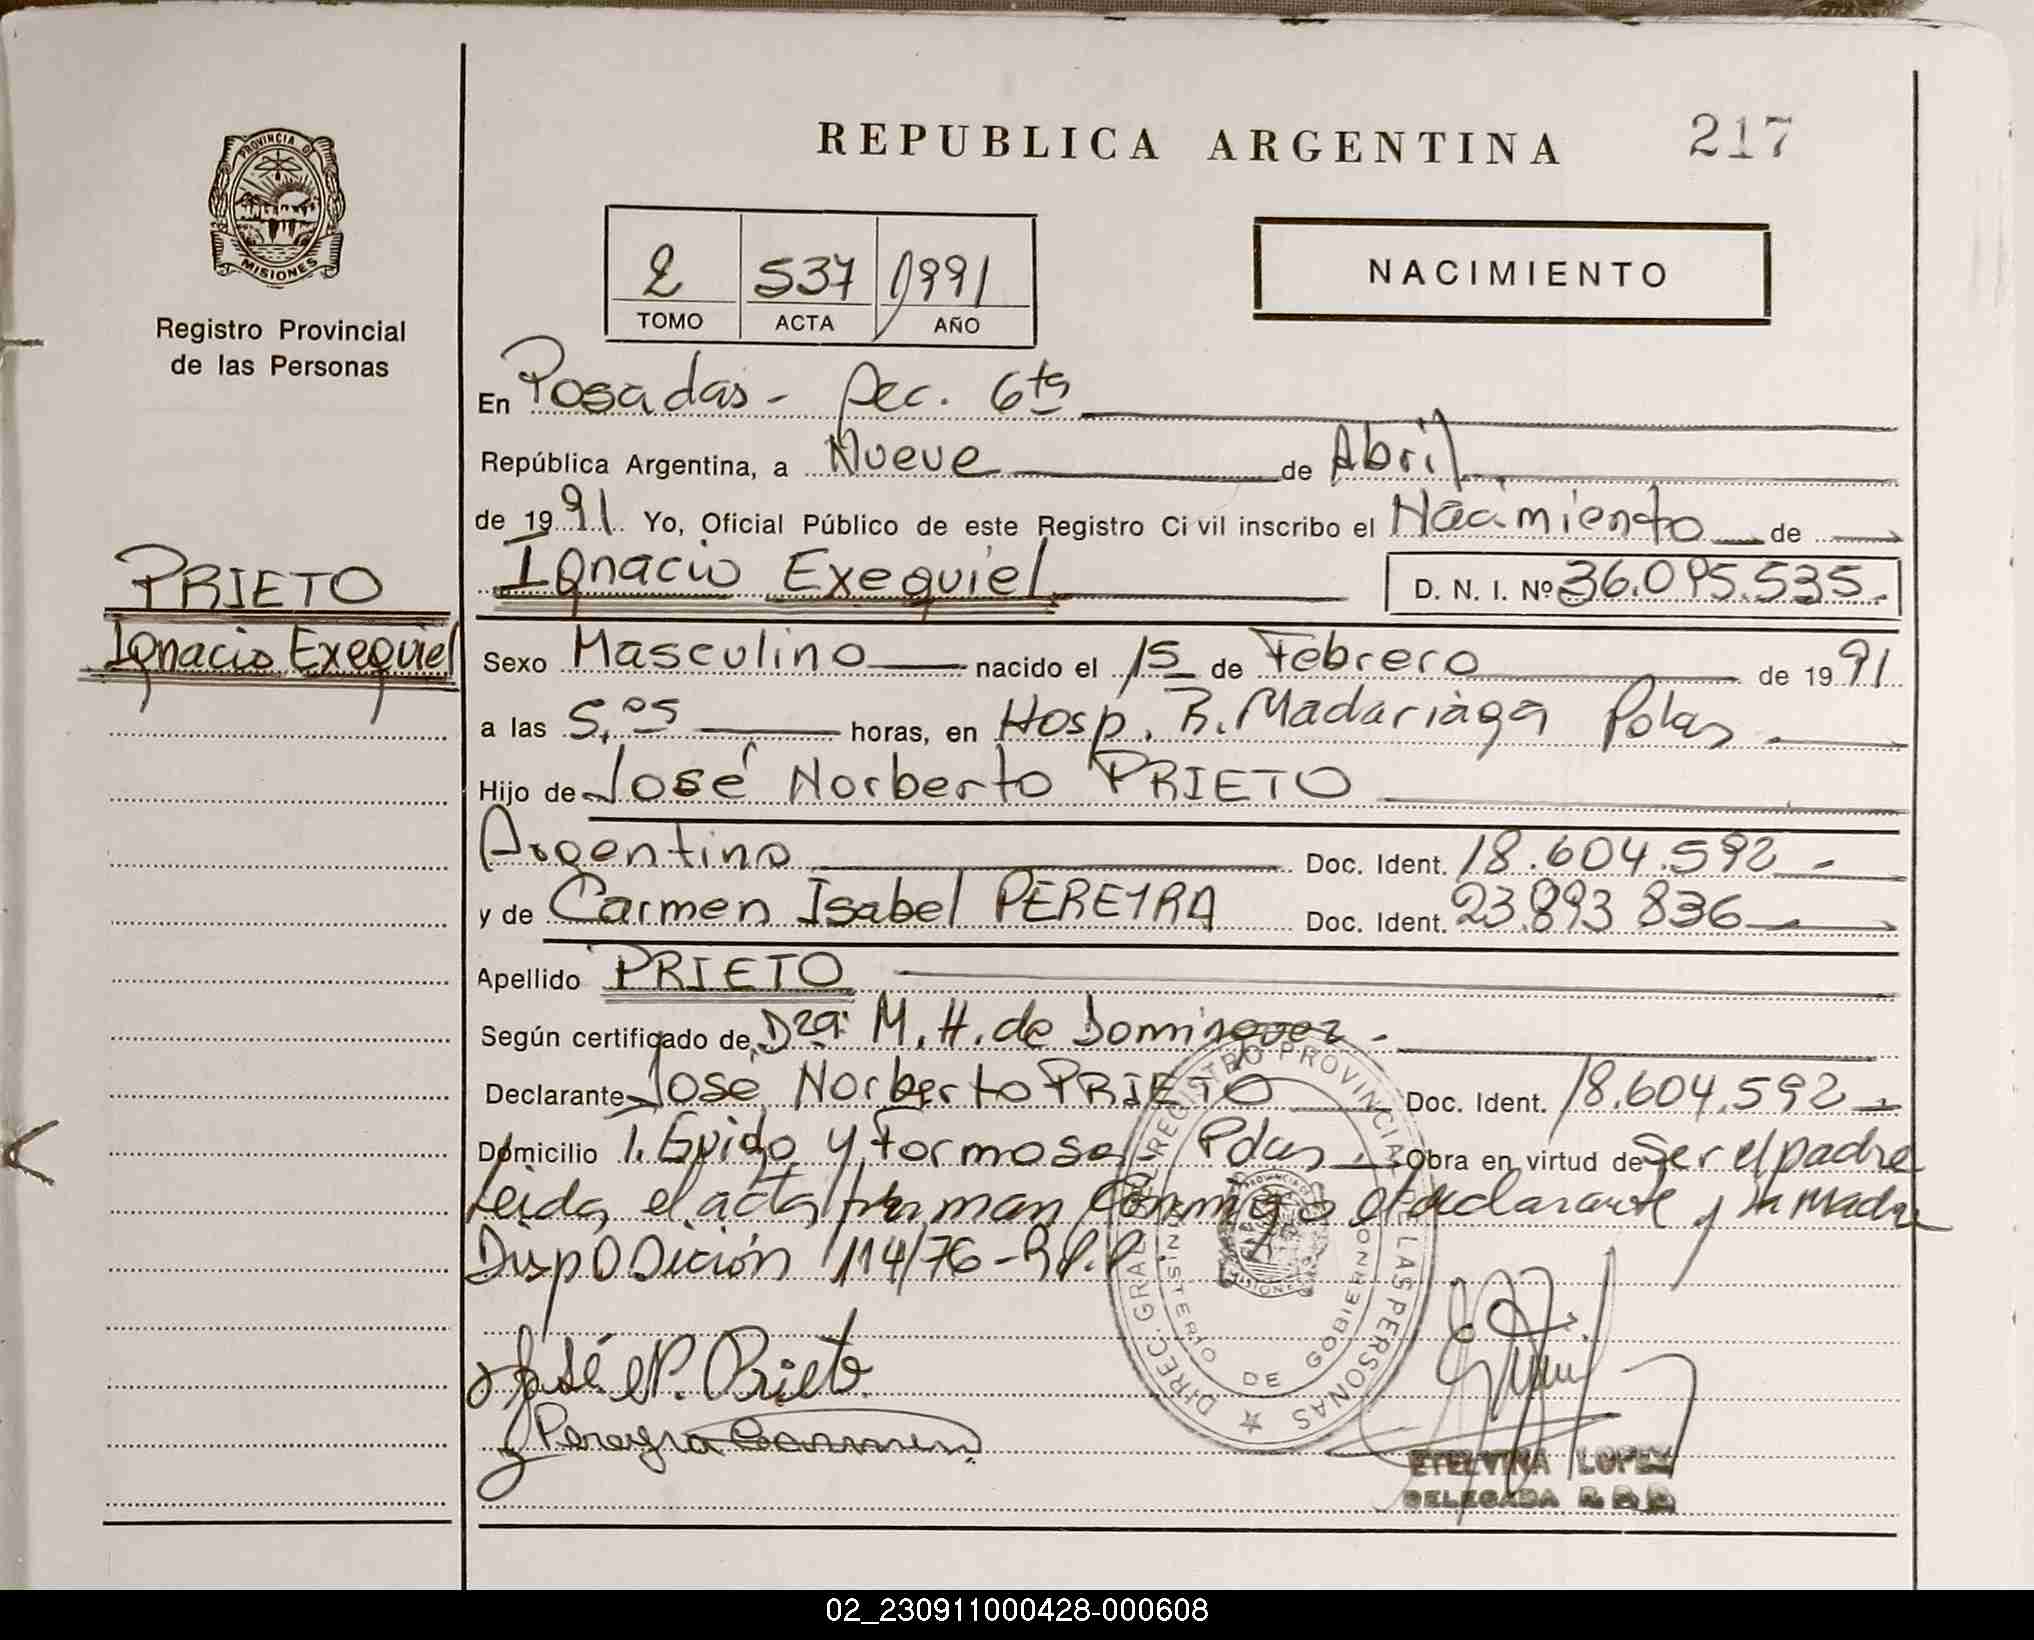 REPUBLICA ARGENTINA 217
PROVINCIA DE
MISIONES
Registro Provincial
de las Personas
2 537 1991
TOMO ACTA AÑO
NACIMIENTO
En Posadas - Sec. 6ta
República Argentina, a Nueve de Abril
de 1991 Yo, Oficial Público de este Registro Civil inscribo el Nacimiento de
PRIETO
Ignacio Exequiel
Ignacio Exequiel D. N. I. Nº 36.095.535.
Sexo Masculino nacido el 15 de Febrero de 1991
a las 5,05 horas, en Hosp. R. Madariaga Pdas
Hijo de José Norberto PRIETO
Argentino Doc. Ident. 18.604.592 -
y de Carmen Isabel PEREYRA Doc. Ident. 23.893 836
Apellido PRIETO
Según certificado de Dra. M. H. de Dominguez -
Declarante José Norberto PRIETO Doc. Ident. 18.604.592
Domicilio Guido y Formosa Pdas Obra en virtud de Ser el padre
Leida el acta firman conmigo el declarante y la Madre
Disposición 114/76 - R.P.P.
José N. Prieto
Pereyra Carmen
DIREC. GRAL. DEL REGISTRO PROVINCIAL DE LAS PERSONAS
MINISTERIO DE GOBIERNO
ETELVINA LOPEZ
DELEGADA
02_230911000428-000608